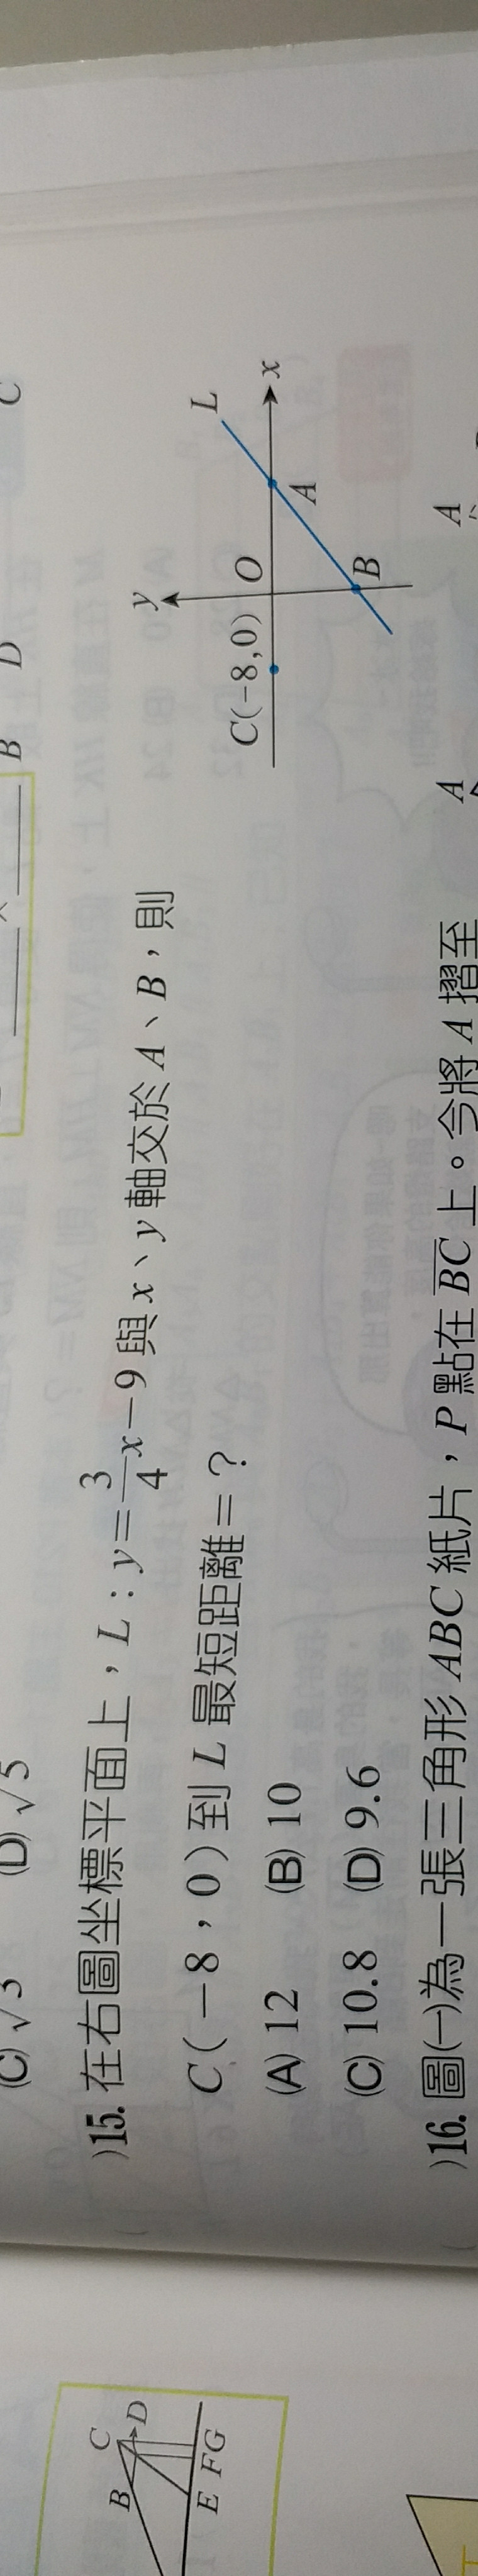 (C) √3 (D) √5
B D C
)15. 在右圖坐標平面上，L：y=3/4x−9 與 x、y 軸交於 A、B，則
C(−8，0)到 L 最短距離=？
(A) 12 (B) 10
(C) 10.8 (D) 9.6
y
L
C(−8,0) O
x
A
B
)16. 圖(一)為一張三角形 ABC 紙片，P 點在 BC 上。今將 A 摺至
A A
B C
D
E F G